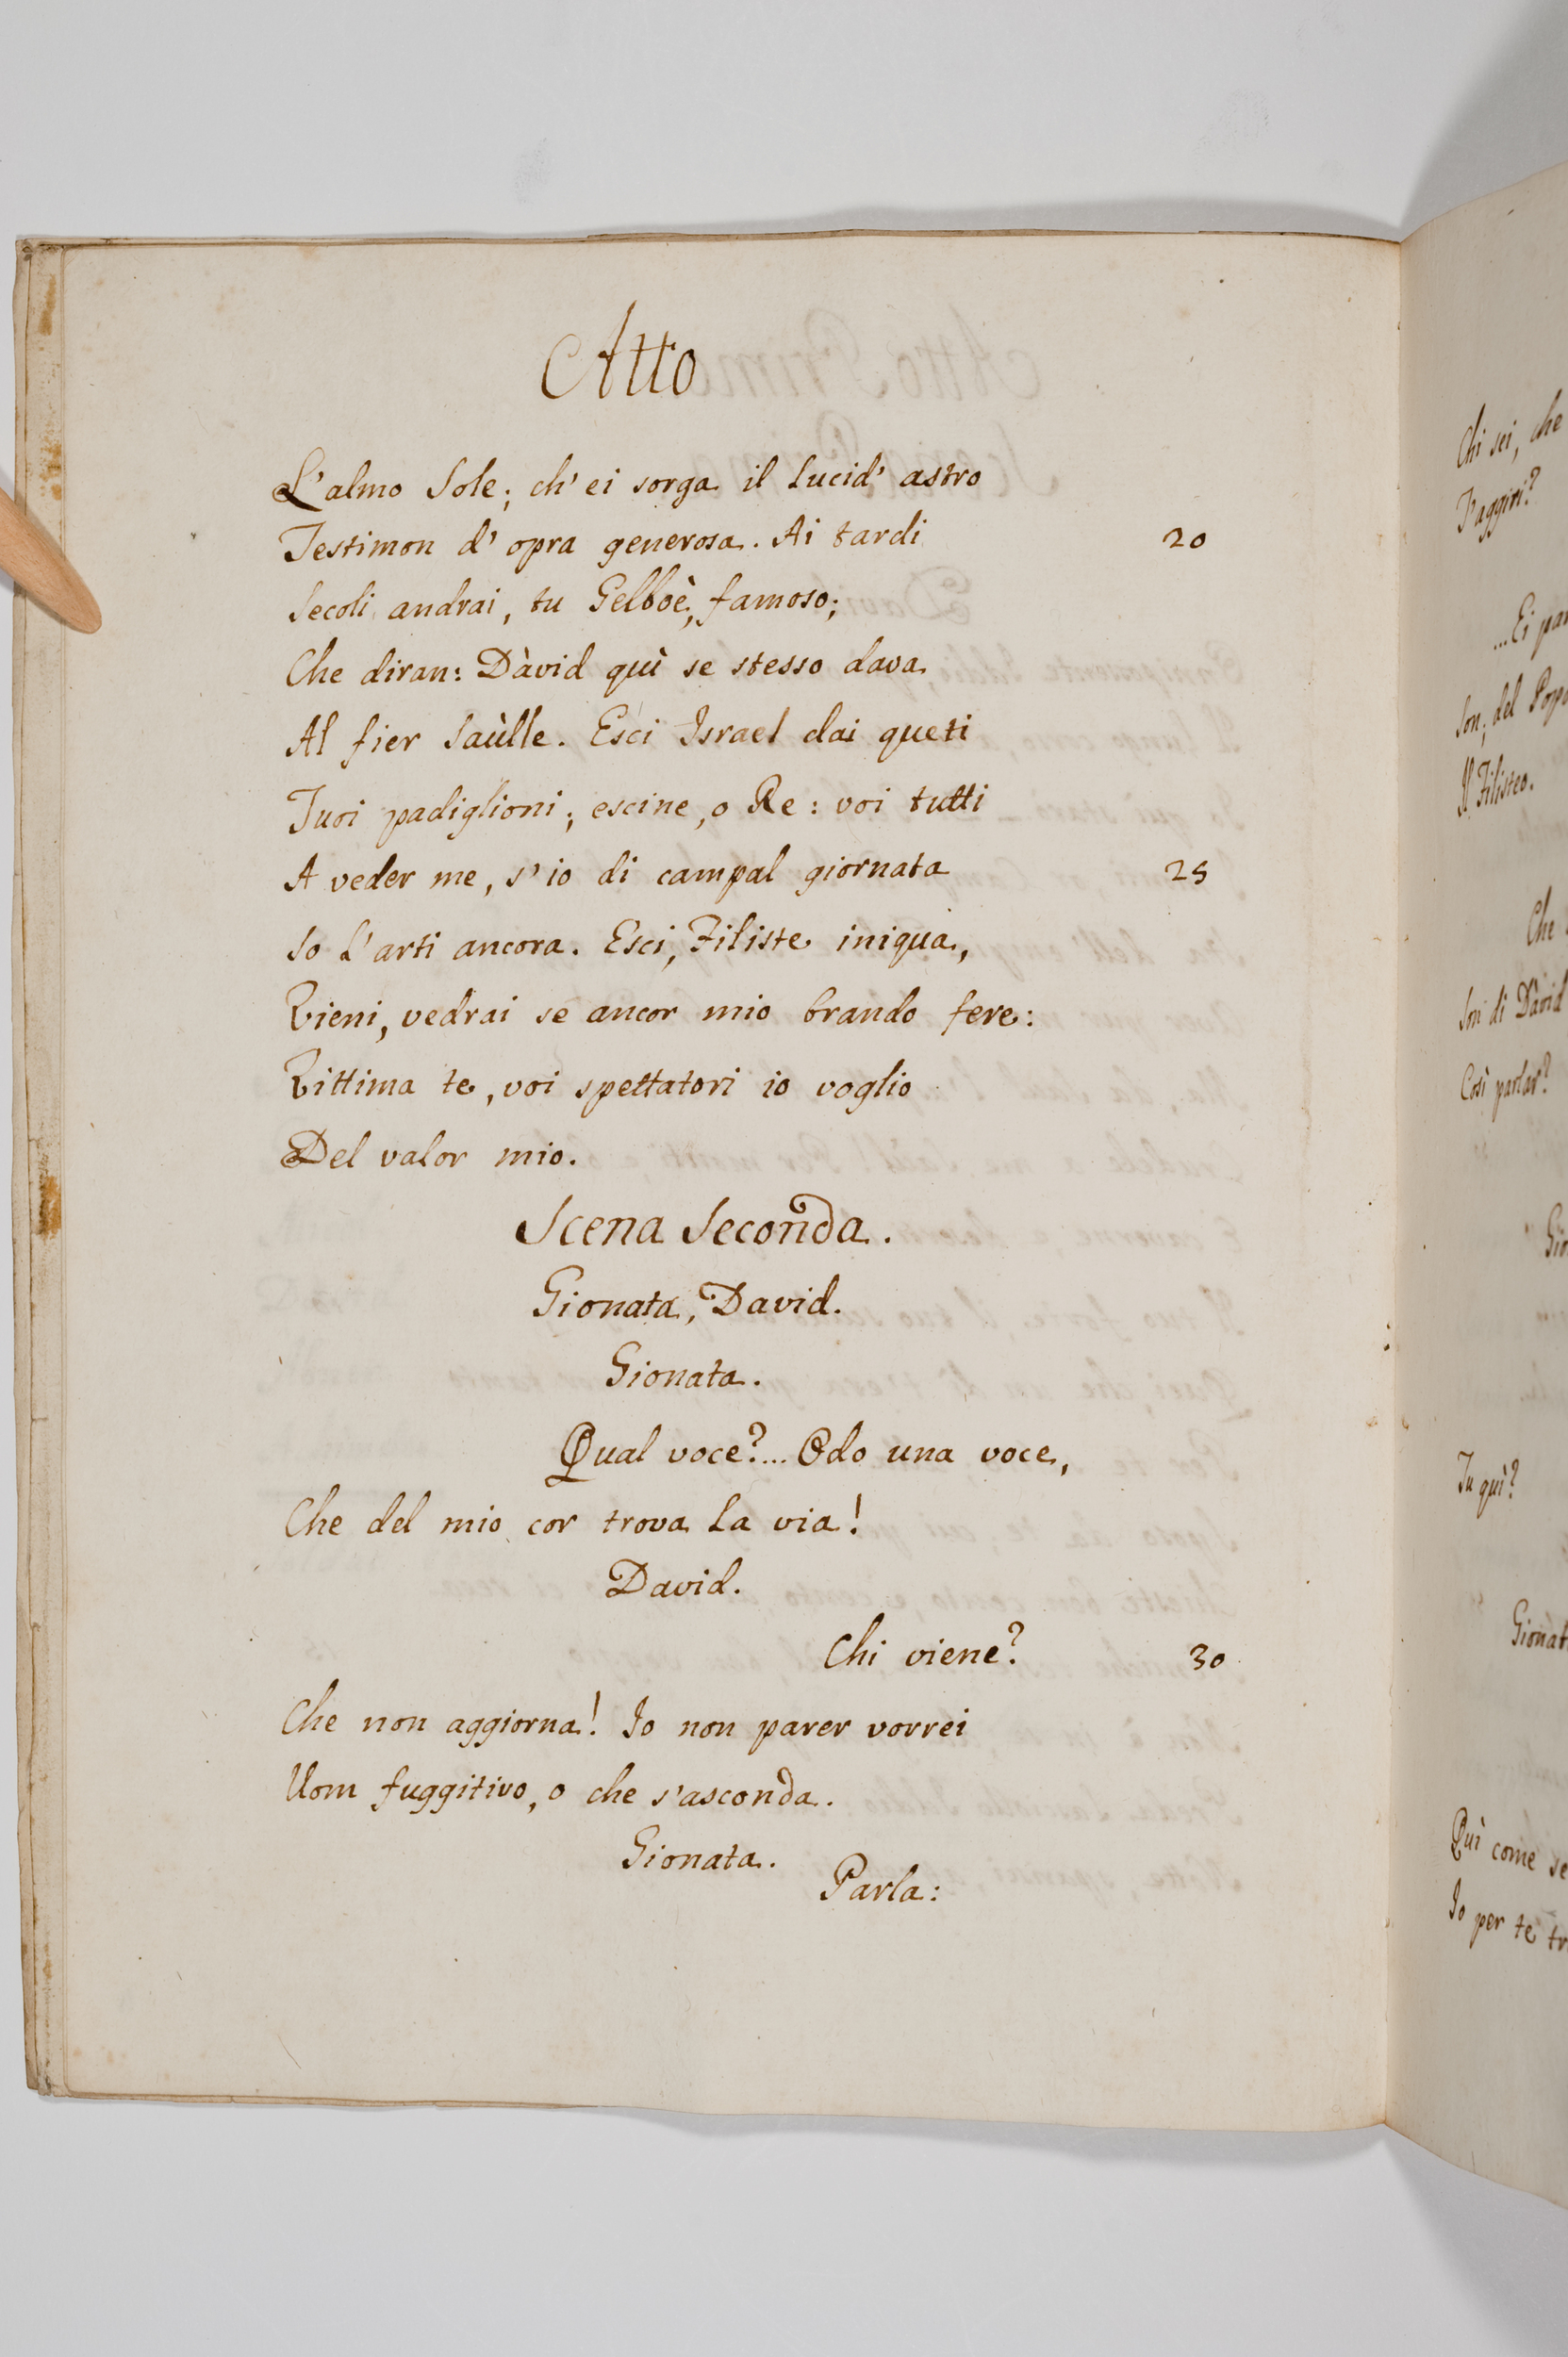 Atto
L'almo Sole; ch'ei sorga il lucid' astro
Testimon d' opra generosa. Ai tardi 20
Secoli andrai, tu Gelboè, famoso;
Che diran: Dàvid quì se stesso dava
Al fier Saùlle. Esci Israel dai queti
Tuoi padiglioni; escine, o Re: voi tutti
A veder me, s'io di campal giornata 25
So l'arti ancora. Esci, Filiste iniqua,
Vieni, vedrai se ancor mio brando fere:
Vittima te, voi spettatori io voglio
Del valor mio.
Scena Seconda.
Gionata, David.
Gionata.
Qual voce?... Odo una voce,
Che del mio cor trova la via!
David.
Chi viene? 30
Che non aggiorna! Io non parer vorrei
Uom fuggitivo, o che s'asconda.
Gionata.
Parla:
Chi sei, che
T'aggiri?
...Ei
Son; del
Il Filisteo.
Che
Son di Dàvid
Così parlar?
Tu quì?
Quì come
Io per te